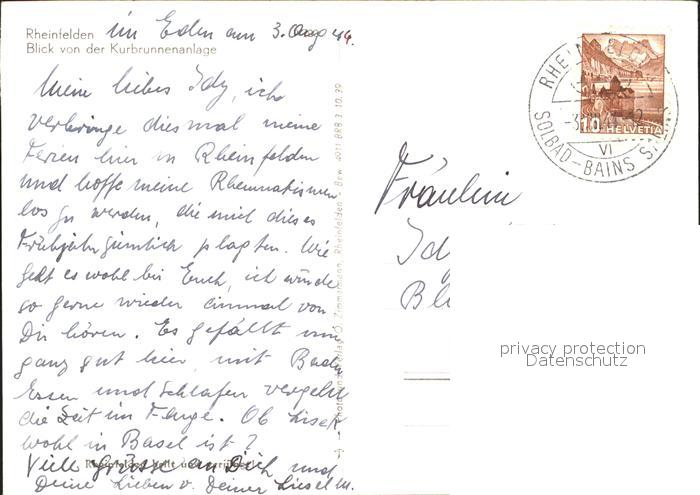 Rheinfelden im Eden am 3. Aug 44.
Blick von der Kurbrunnenanlage
Meine liebes Idy, ich
verbringe diesmal meine
Ferien hier in Rheinfelden
und hoffe meine Rheumatismen
los zu werden, die mich dieses
Frühjahr ziemlich plagten. Wie
geht es wohl bei Euch, ich würde
so gerne wieder einmal von
Dir hören. Es gefällt mir
ganz gut hier, mit Baden
Essen und Schlafen vergeht
die Zeit im Fluge. Ob Lisel
wohl in Basel ist?
Viele Grüsse an Dich und
Deine Lieben v. Deiner Liesel M.
Zimmermann, Rheinfelden - Bew. 4011 BRB 3. 10. 39
Fräulein
Idy
RHEINFELDEN
SOLBAD-BAINS
VI
10 HELVETIA
privacy protection
Datenschutz